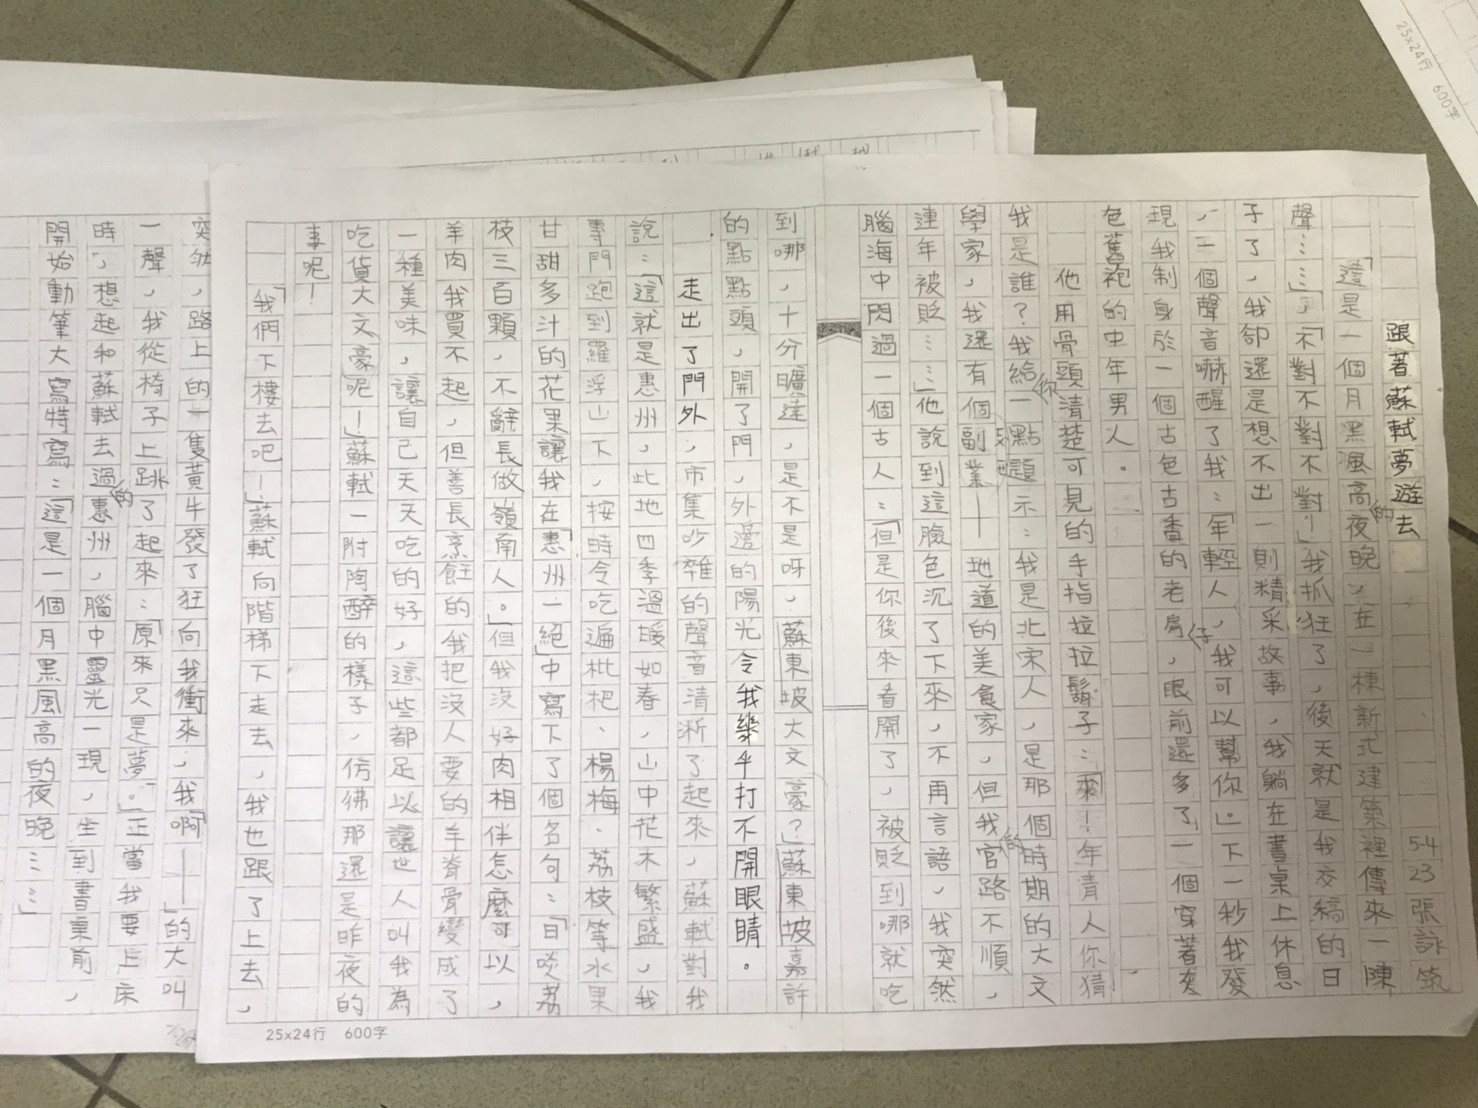 跟著蘇軾夢遊去
5-4 23 張詠筑
「這是一個月黑風高的夜晚,在一棟新式建築裡傳來一陣
聲……」,「不對不對不對!」我抓狂了,後天就是我交稿的日
子了,我卻還是想不出一則精采故事,我躺在書桌上休息
,一個聲音嚇醒了我:「年輕人,我可以幫你」。下一秒我發
現我制身於一個古色古香的老房仔,眼前還多了一個穿著灰
色舊袍的中年男人。
他用骨頭清楚可見的手指拉拉鬍子:來!年青人你猜
我是誰?我給你一點題示:我是北宋人,是那個時期的大文
學家,我還有個副業——地道的美食家,但我的官路不順,
連年被貶……」他說到這臉色沉了下來,不再言語,我突然
腦海中閃過一個古人:「但是你後來看開了,被貶到哪就吃
到哪,十分曠達,是不是呀,蘇東坡大文豪?」蘇東坡嘉許
的點點頭,開了門,外邊的陽光令我幾乎打不開眼睛。
走出了門外,市集吵雜的聲音清淅了起來,蘇軾對我
說:「這就是惠州,此地四季溫暖如春,山中花木繁盛,我
專門跑到羅浮山下,按時令吃遍枇杷、楊梅、荔枝等水果
甘甜多汁的花果讓我在「惠州一絕」中寫下了個名句:「日啖荔
枝三百顆,不辭長做嶺南人。」但我沒好肉相伴怎麼可以,
羊肉我買不起,但善長烹飪的我把沒人要的羊脊骨變成了
一種美味,讓自己天天吃的好,這些都足以讓世人叫我為
吃貨大文豪呢!」蘇軾一附陶醉的樣子,仿彿那還是昨夜的
事呢!
「我們下樓去吧!」蘇軾向階梯下走去,我也跟了上去,
突然,路上的一隻黃牛發了狂向我衝來,我「啊——」的大叫
一聲,我從椅子上跳了起來:「原來只是夢。」正當我要上床
時,想起和蘇軾去過的惠州,腦中靈光一現,坐到書桌前,
開始動筆大寫特寫:「這是一個月黑風高的夜晚……」
25x24行 600字
25x24行 600字